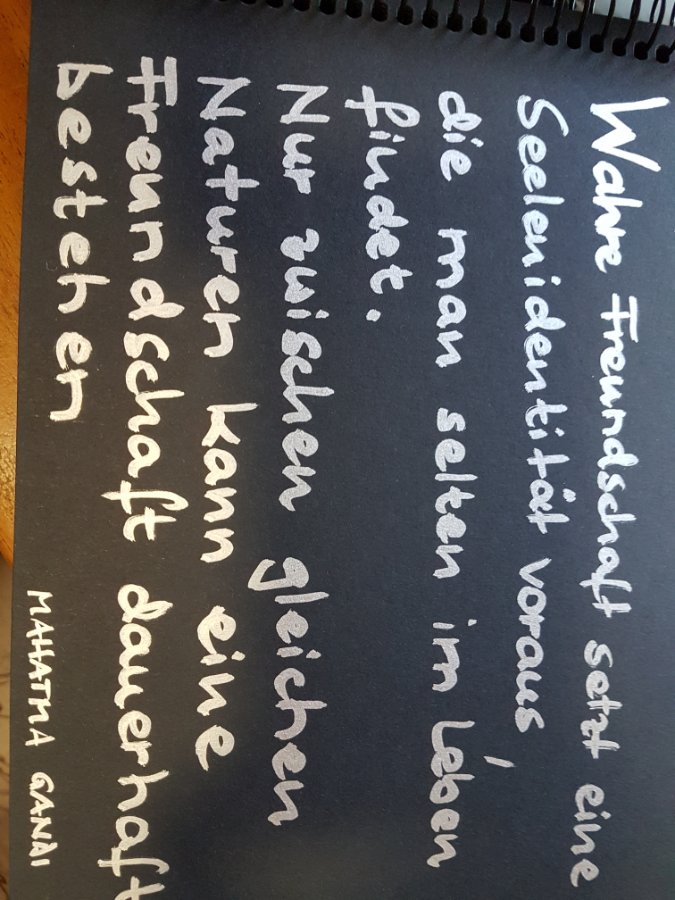 Wahre Freundschaft setzt eine
Seelenidentität voraus
die man selten im Leben
findet.
Nur zwischen gleichen
Naturen kann eine
Freundschaft dauerhaft
bestehen
MAHATMA GANDI